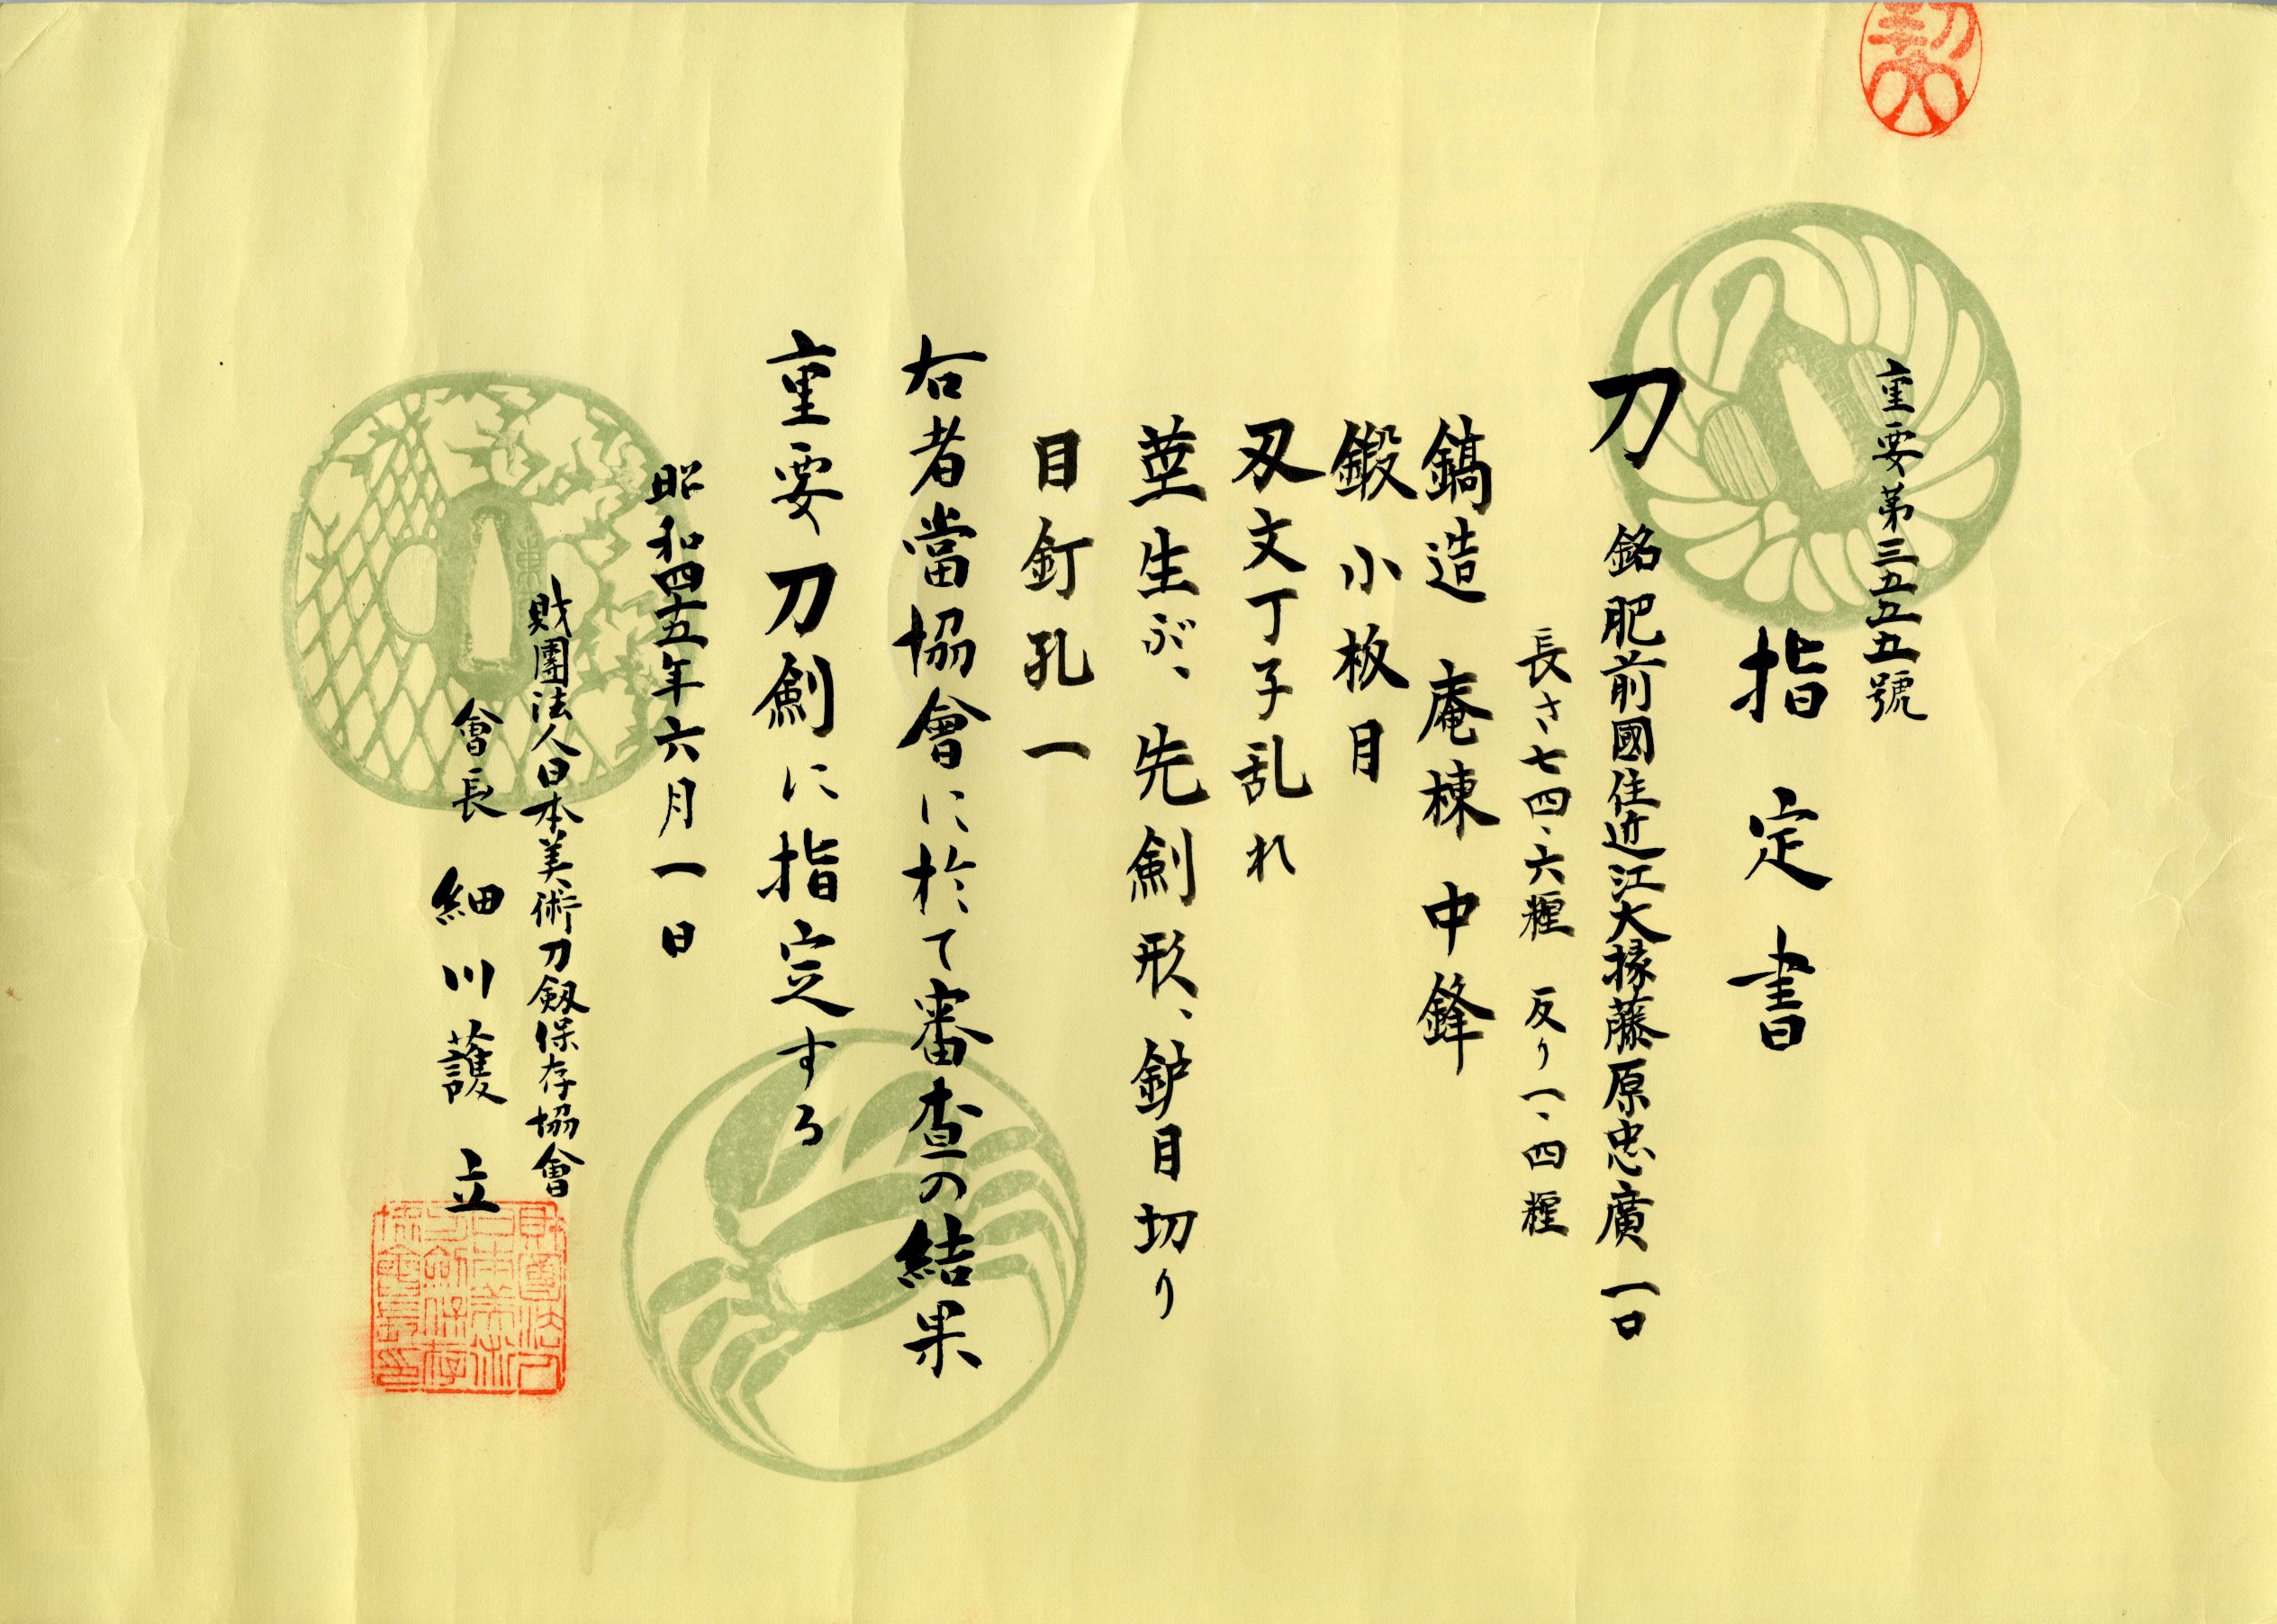 重要第三五五五號
指定書
刀 銘肥前國住近江大掾藤原忠廣 一口
長さ七四、六糎 反り一、四糎
鎬造 庵棟 中鋒
鍛小板目
刃文丁子乱れ
茎生ぶ、先剣形、鈩目切り
目釘孔一
右者當協會に於て審査の結果
重要刀剣に指定する
昭和四十五年六月一日
財團法人日本美術刀剱保存協會
會長 細川護立
財團法人日本美術刀剣保存協會長印